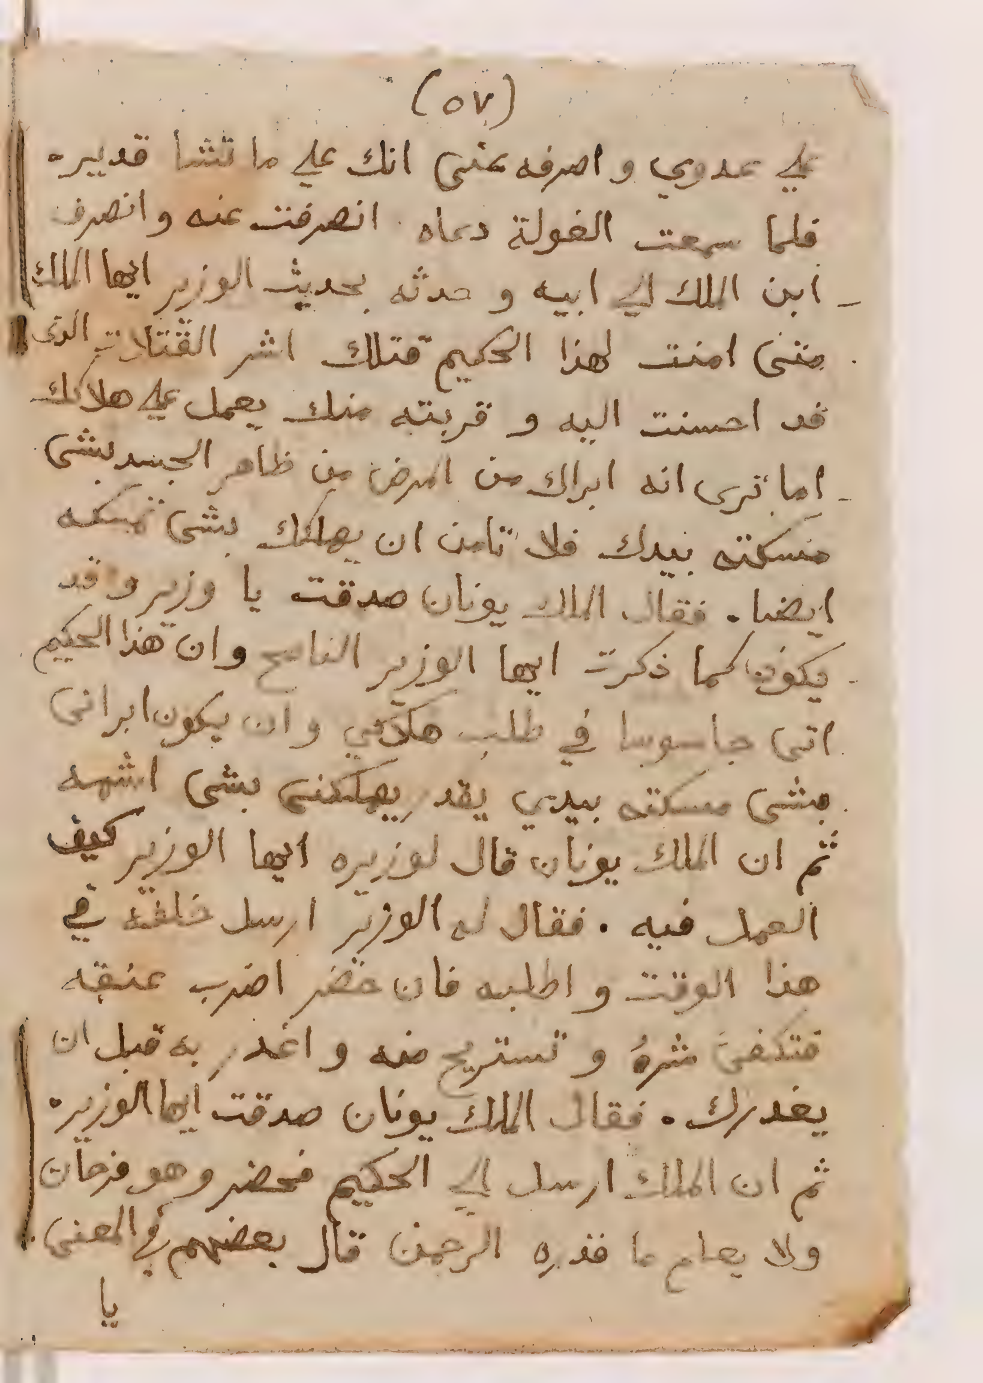 (٥٧)
علي عدوي و اصرفه عني انك علي ما تشا قدير.
فلما سمعت الغولة دعاه انصرفت عنه وانصرف
ابن الملك الي ابيه و حدثه بحديث الوزير ايها الملك
متى امنت لهذا الحكيم قتلك اشر القتلات الذي
قد احسنت اليه و قربته منك يعمل علي هلاكك
اما ترى انه ابراك من المرض من ظاهر الجسد بشى
مسكته بيدك فلا تامن ان يهلكك بشى تمسكه
ايضا. فقال الملك يونان صدقت يا وزير وقد
يكون كما ذكرت ايها الوزير الناصح وان هذا الحكيم
اتى جاسوسا في طلب هلاكي وان يكون ابراني
بشى مسكته بيدي يقدر يهلكني بشى اشمه
ثم ان الملك يونان قال لوزيره ايها الوزير كيف
العمل فيه. فقال له الوزير ارسل خلفه في
هذا الوقت و اطلبه فان حضر اضرب عنقه
فتكفى شره و تستريح منه و اغدر به قبل ان
يغدرك. فقال الملك يونان صدقت ايها الوزير.
ثم ان الملك ارسل الي الحكيم فحضر وهو فرحان
ولا يعلم ما قدره الرحمن قال بعضهم في المعنى
يا